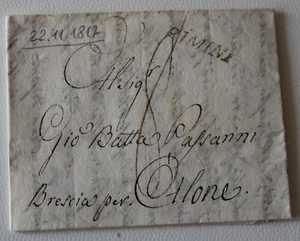 22.11.1807
RIMINI
Al Sigr
Gio Batta Passarini
Brescia per Alone.